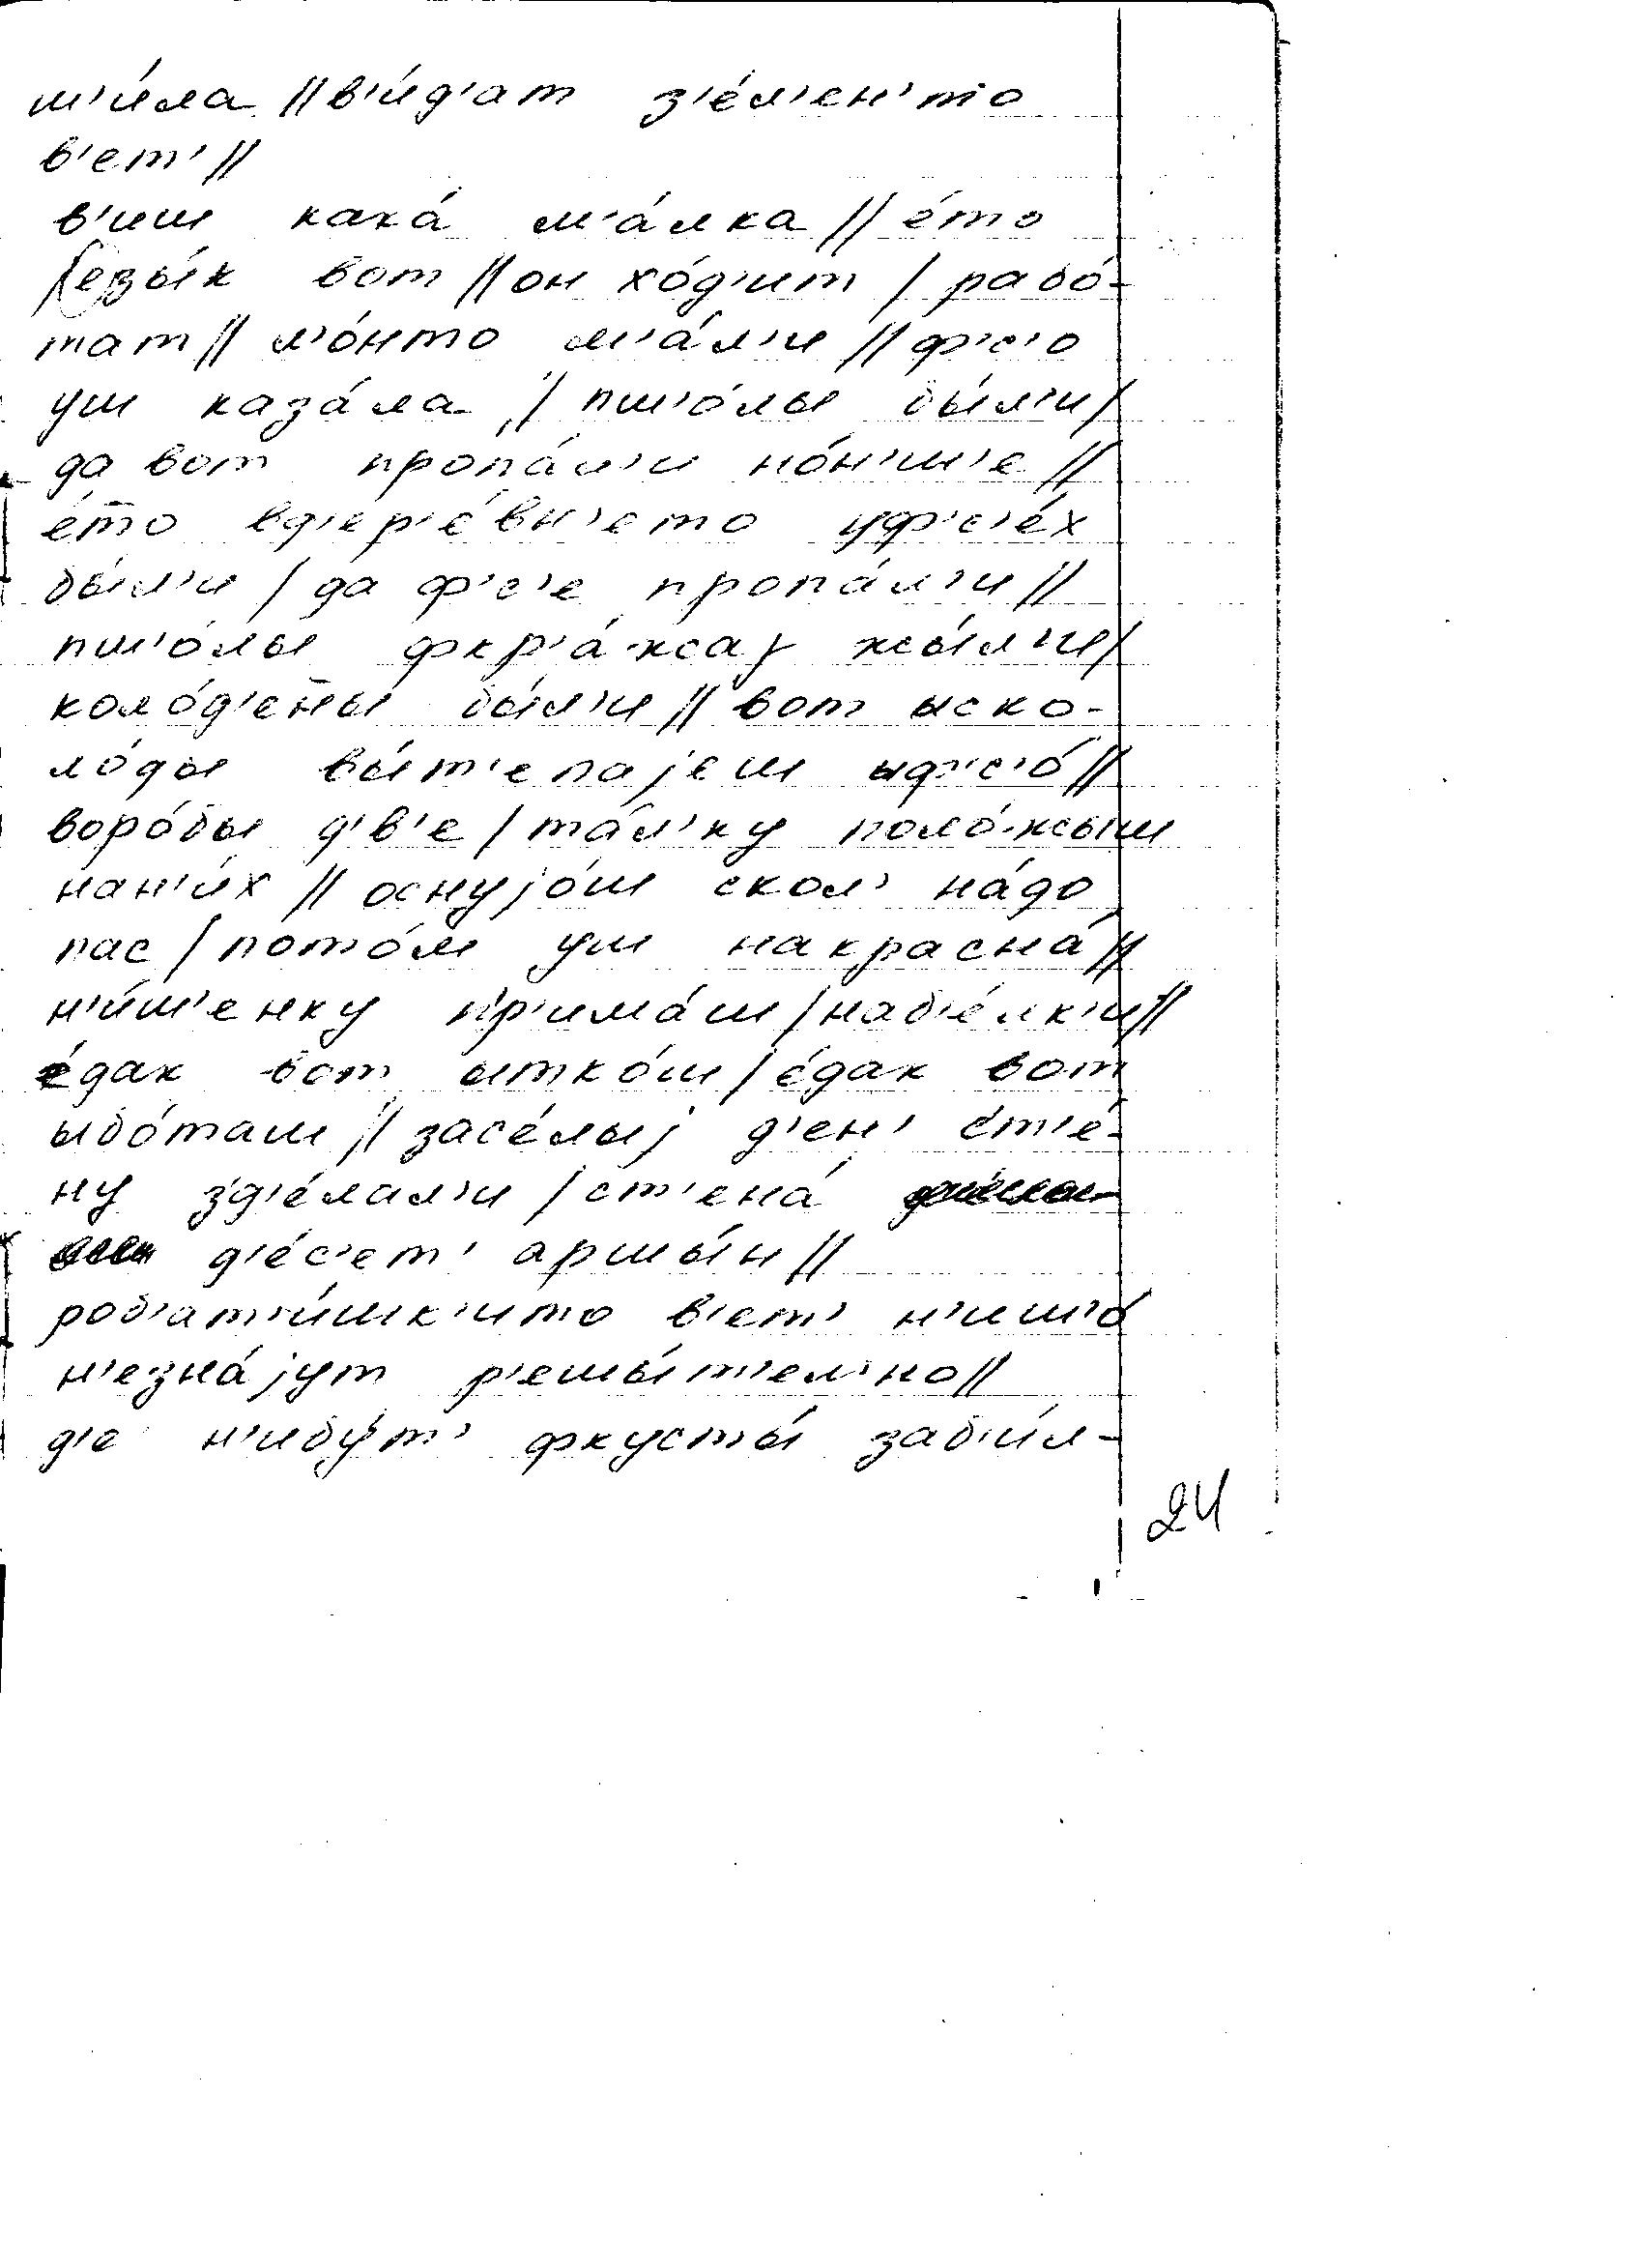 ш'и́ла // в'и́д'ат з'е́л'ен'то
в'ет' //
в'иш кака́ м'а́лка // е́то
jезы́к вот // он хо́д'ит / рабо́-
тат // л'о́нто м'а́л'и // ф'с'о
уш каза́ла / пш'о́лы бы́л'и /
да вот пропа́л'и но́н'ш'е //
е́то вд'ер'е́вн'ето уф'с'е́х
бы́л'и / да ф'с'е пропа́л'и //
пш'о́лы фкр'а́жаj жы́л'и /
коло́д'ены бы́л'и // вот ыско-
ло́ды вы́т'епајеш ыф'с'о́ //
воро́бы д'в'е / та́л'ку поло́жыш
нан'и́х // оснуjо́ш скол' на́до
пас / пото́м уш накрасна́ //
н'и́ш'енку пр'има́ш / наб'е́лк'и //
е́дак вот ытко́ш / е́дак вот
ыбо́таш // засе́лыj д'ен' ст'е́-
ну зд'е́лал'и / ст'ена́
д'е́с'ет' аршы́н //
роб'ат'и́шк'ито в'ет' н'иш'о́
н'езна́jут р'ешы́т'ел'но //
д'е н'ибу́т' фкусты́ заб'и́л-
24